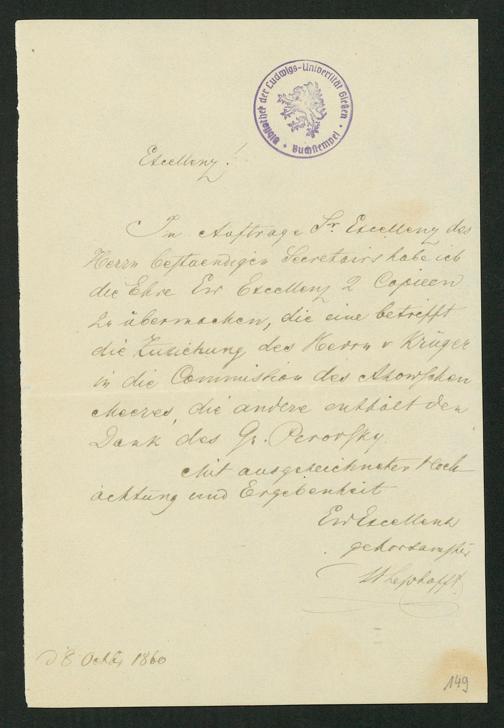 Bibliothek der Ludwigs-Universität Gießen
• Buchstempel •
Excellenz!
Im Auftrage Sr. Excellenz des
Herrn bestaendigen Secretairs habe ich
die Ehre Ew Excellenz 2 Copieen
zu übermachen, die eine betrifft
die Zuziehung des Herrn v Krüger
in die Commission des Asowschen
Meeres, die andere enthält den
Dank des Gr. Perovsky.
Mit ausgezeichneter Hoch
achtung und Ergebenheit
Ew Excellenz
gehorsamster
d 8 Octbr 1860
149